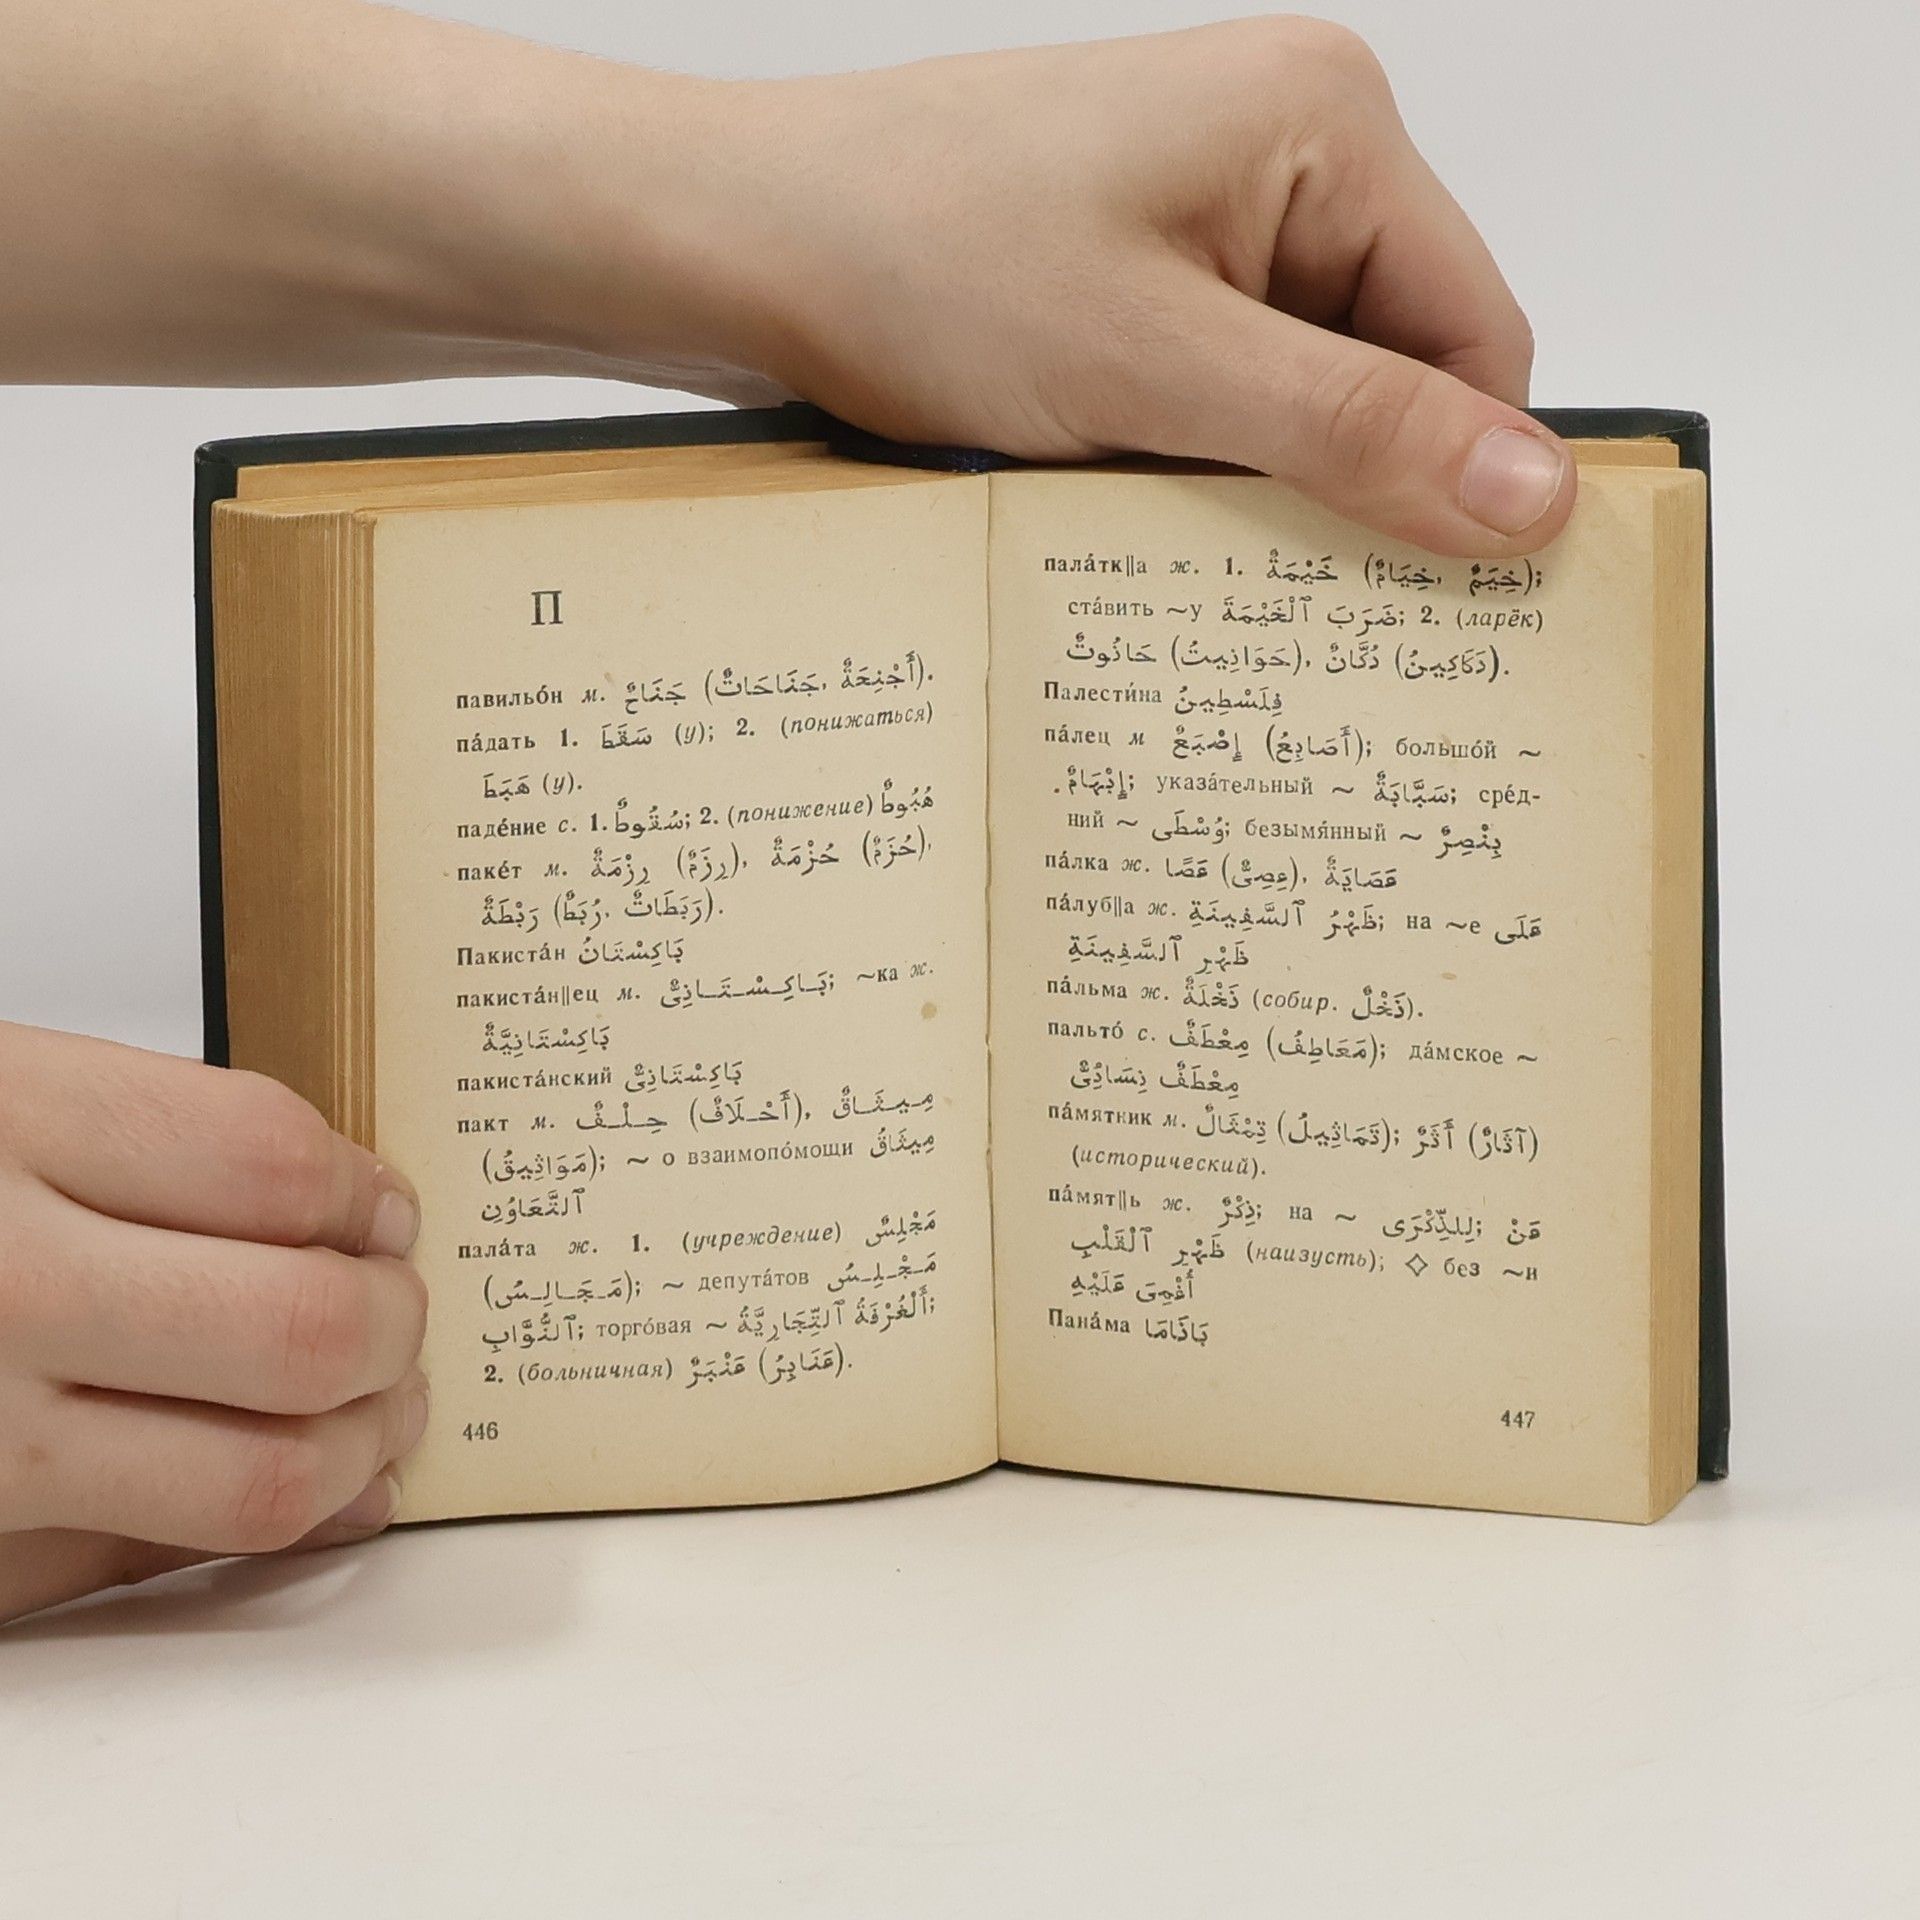 П
павильо́н м. جَنَاحٌ (جَنَاحَاتٌ, أَجْنِحَةٌ).
па́дать 1. سَقَطَ (у); 2. (понижаться)
هَبَطَ (у).
паде́ние с. 1. سُقُوطٌ; 2. (понижение) هُبُوطٌ
паке́т м. رِزْمَةٌ (رِزَمٌ), حُزْمَةٌ (حُزَمٌ),
رَبْطَةٌ (رُبَطٌ, رَبَطَاتٌ).
Пакиста́н بَاكِسْتَانُ
пакиста́н||ец м. بَاكِسْتَانِىٌّ; ~ка ж.
بَاكِسْتَانِيَّةٌ
пакиста́нский بَاكِسْتَانِىٌّ
пакт м. حِلْفٌ (أَحْلَافٌ), مِيثَاقٌ
(مَوَاثِيقُ); ~ о взаимопо́мощи مِيثَاقُ
ٱلتَّعَاوُنِ
пала́та ж. 1. (учреждение) مَجْلِسٌ
(مَجَالِسُ); ~ депута́тов مَجْلِسُ
ٱلنُّوَّابِ; торго́вая ~ أَلْغُرْفَةُ ٱلتِّجَارِيَّةُ;
2. (больничная) عَنْبَرٌ (عَنَابِرُ).
446
пала́тк||а ж. 1. خَيْمَةٌ (خِيَامٌ, خِيَمٌ);
ста́вить ~у ضَرَبَ ٱلْخَيْمَةَ; 2. (ларёк)
حَانُوتٌ (حَوَانِيتُ), دُكَّانٌ (دَكَاكِينُ).
Палести́на فِلَسْطِينُ
па́лец м إِصْبَعٌ (أَصَابِعُ); большо́й ~
إِبْهَامٌ; указа́тельный ~ سَبَّابَةٌ; сре́д-
ний ~ وُسْطَى; безымя́нный ~ بِنْصِرٌ
па́лка ж. عَصًا (عِصِىٌّ), عَصَايَةٌ
па́луб||а ж. ظَهْرُ ٱلسَّفِينَةِ; на ~е عَلَى
ظَهْرِ ٱلسَّفِينَةِ
па́льма ж. نَخْلَةٌ (собир. نَخْلٌ).
пальто́ с. مِعْطَفٌ (مَعَاطِفُ); да́мское ~
مِعْطَفٌ نِسَائِىٌّ
па́мятник м. تِمْثَالٌ (تَمَاثِيلُ); أَثَرٌ (آثَارٌ)
(исторический).
па́мят||ь ж. ذِكْرٌ; на ~ لِلذِّكْرَى; عَنْ
ظَهْرِ ٱلْقَلْبِ (наизусть); ◇ без ~и
أُغْمِىَ عَلَيْهِ
Пана́ма بَانَامَا
447